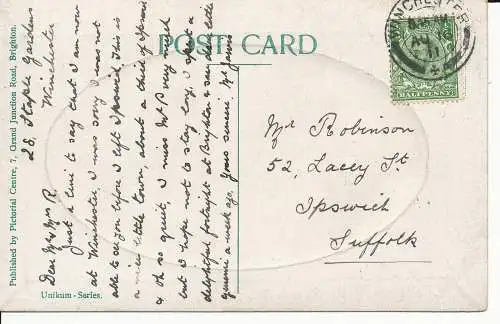 POST CARD
WINCHESTER
AU
11
HALFPENNY
Published by Pictorial Centre, 7, Grand Junction Road, Brighton.
Unikum-Series.
28, Gardens
Winchester
Dear Mr & Mrs R.
Just a line to say that I am now
at Winchester, I was sorry I was not
able to see you before I left Ipswich. This is
a nice little town, about a third Ipswich
& oh so quiet, I miss Mr P very much
but I hope not to stay long. I spent a
delightful fortnight at Brighton & saw dear little
a week ago. Yours sincerely
Mr Robinson
52, Lacey St.
Ipswich
Suffolk